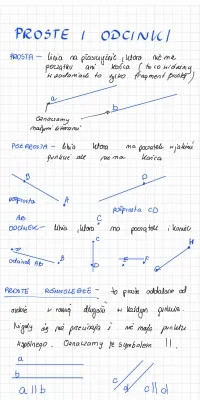 PROSTE I ODCINKI
PROSTA – linia na płaszczyźnie, która nie ma
początku ani końca (to co widzimy
w zadaniach to tylko fragment prostej)
a
b
Oznaczamy
małymi literami
PÓŁPROSTA – linia która ma początek w jakimś
punkcie ale nie ma końca
B
A
D
półprosta
AB
półprosta CD
C
ODCINEK – linia, która ma początek i koniec
B
C
D
E
F
H
odcinek AB
PROSTE RÓWNOLEGŁE – to proste oddalone od
siebie w równej długości w każdym punkcie.
Nigdy się nie przecinają i nie mają punktu
wspólnego. Oznaczamy je symbolem ||.
a
b
a || b
c
d
c || d